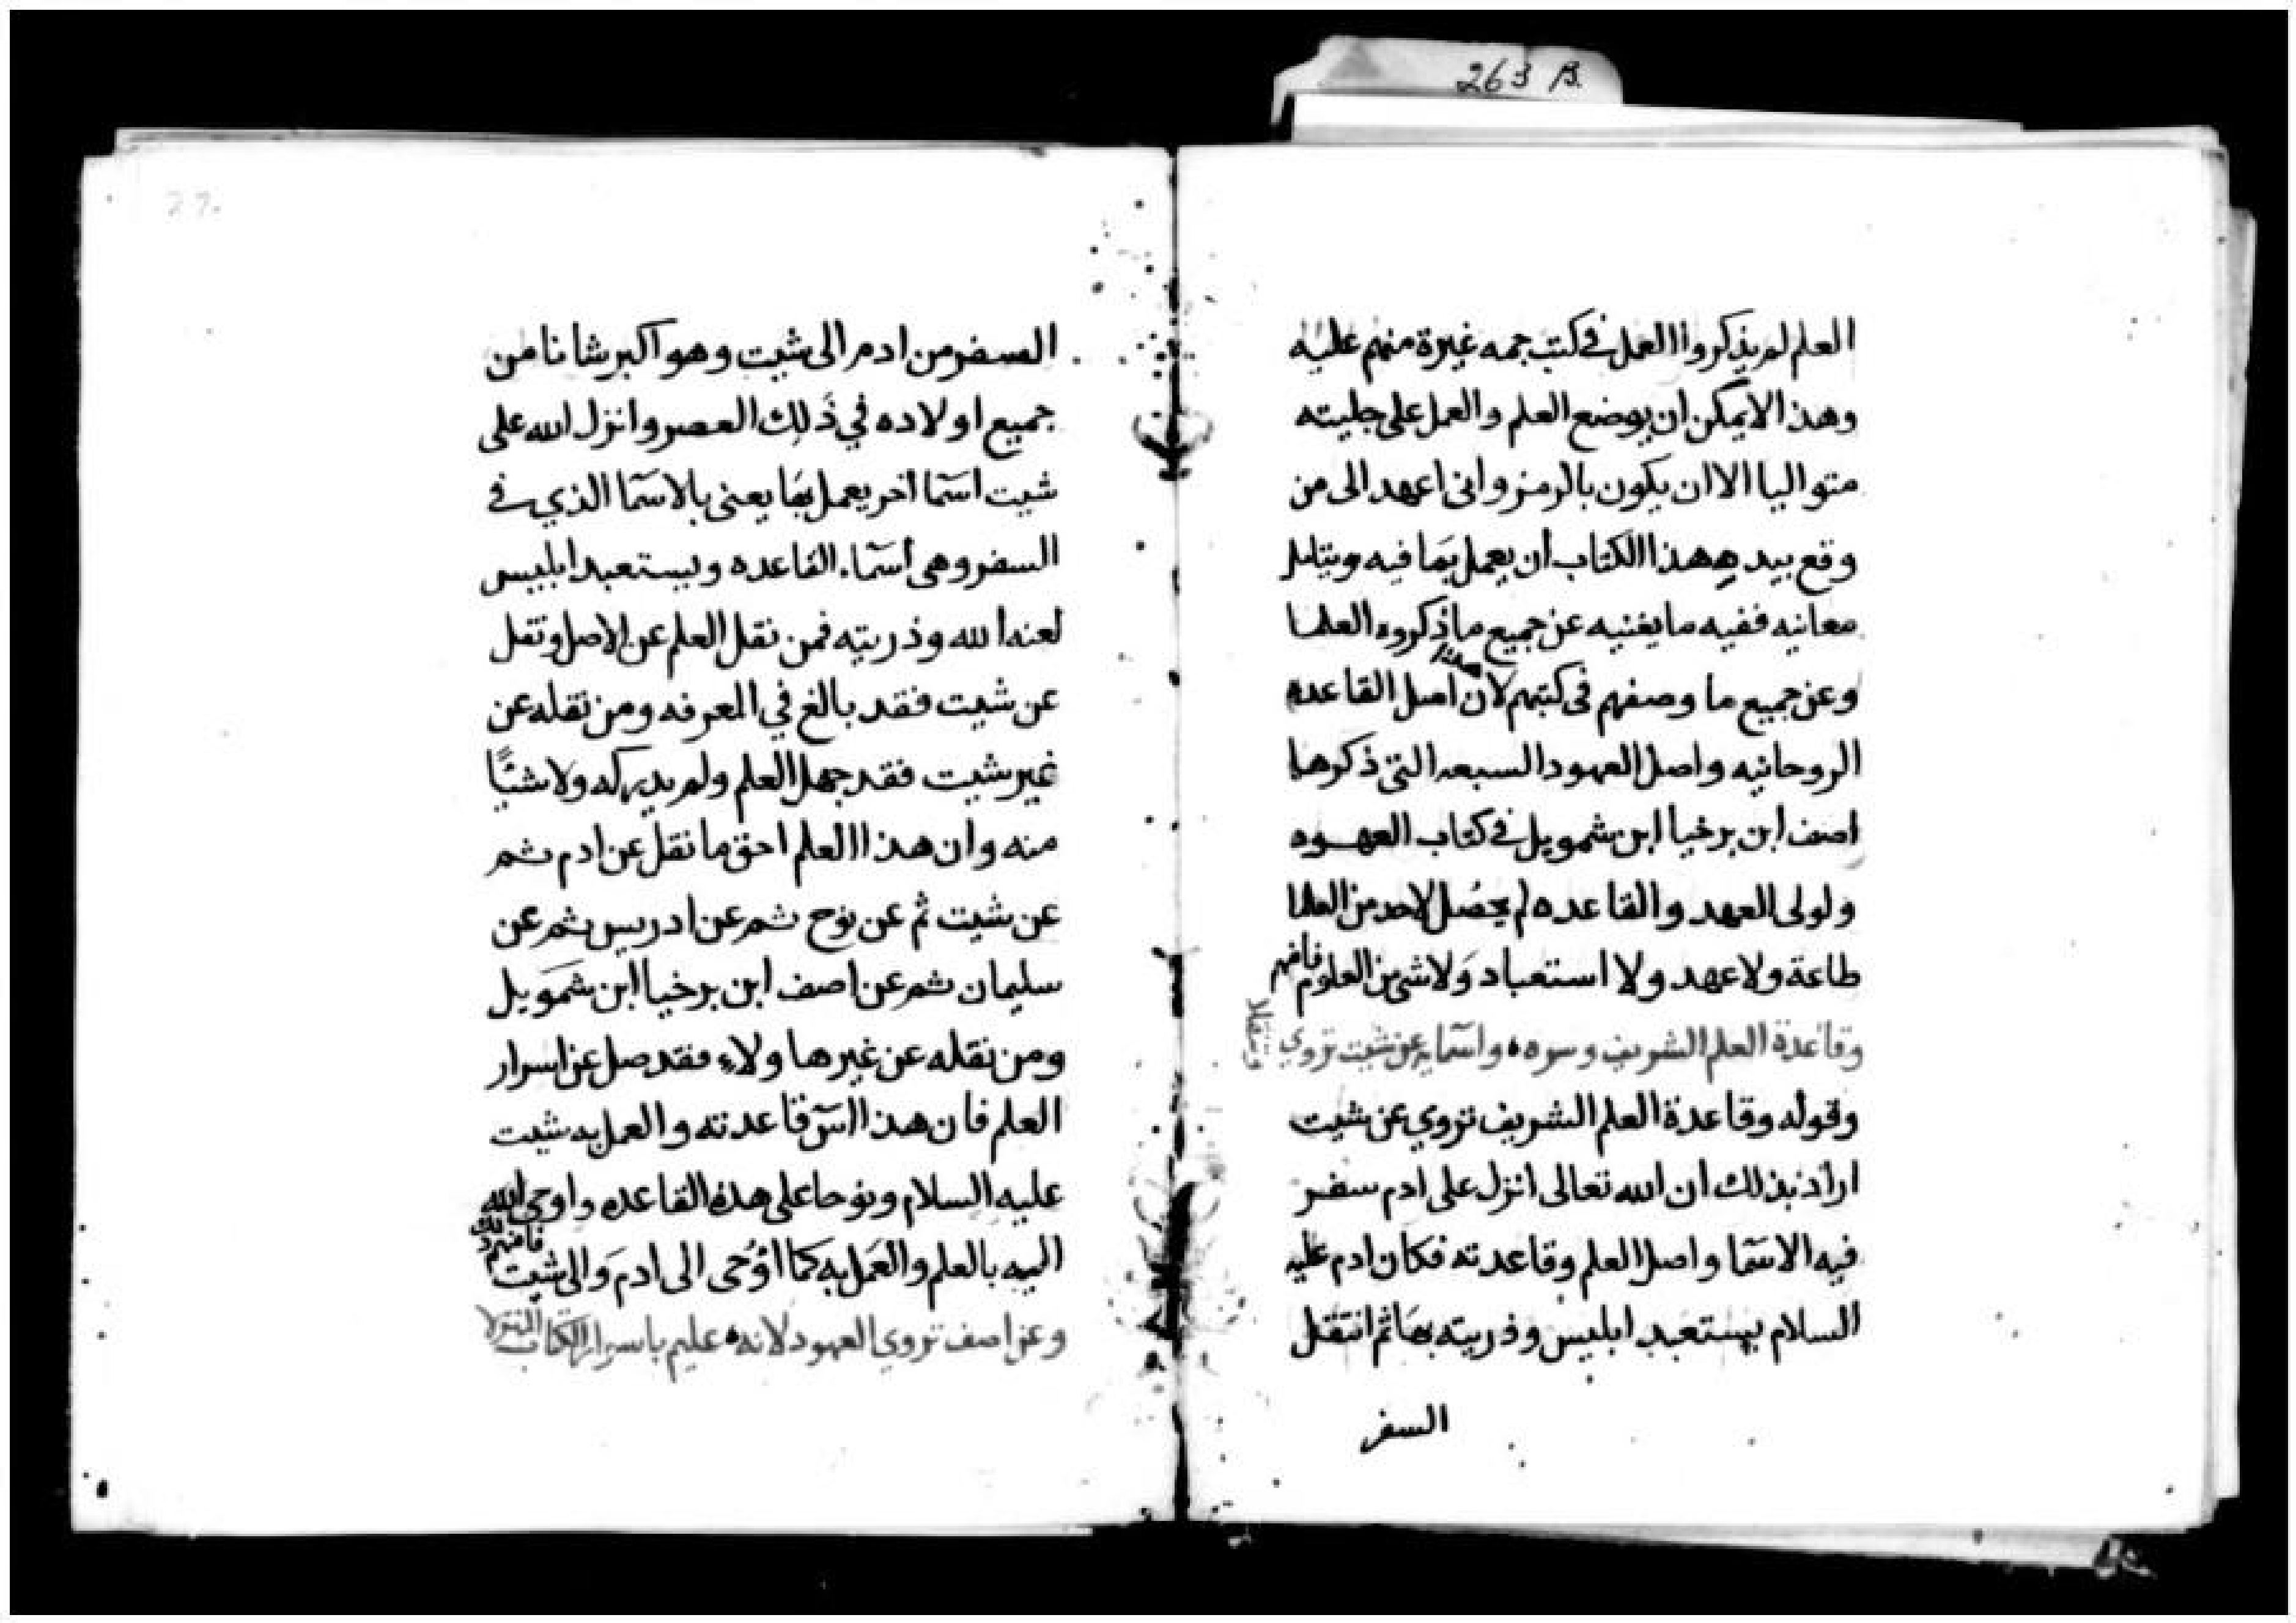 263 B.
العلم لم يذكروا العمل في كتب جمه غيرة منهم عليه
وهذا لا يمكن ان يوضع العلم والعمل على جليته
متواليا الا ان يكون بالرمز وانى اعهد الى من
وقع بيده هذا الكتاب أن يعمل بما فيه ويتامل
معانيه ففيه ما يغنيه عن جميع ما ذكروه العلما
وعن جميع ما وصفهم فى كتبهم لان هذا اصل القاعدة
الروحانيه واصل العهود السبعه التي ذكرها
اصف ابن برخيا ابن شمويل في كتاب العهود
ولولى العهد والقاعده لم يحصُل لاحد من العلما
طاعة ولا عهد ولا استعباد وَلا شى من العلوم فافهم
وقاعدة العلم الشريف وسره ، واسمآيه عن شيت تروي
وقوله وقاعدة العلم الشريف تروي عن شيت
اراد بذلك ان الله تعالى انزل على ادم سفر
فيه الاسمآ واصل العلم وقاعدته فكان ادم عليه
السلام يستعبد ابليس وذريته بها ثم انتقل
السفر
27.
السفر من ادم الى شيت وهو اكبر شانا من
جميع اولاده في ذَلك العصر وانزل الله على
شيت اسمآ اخر يعمل بهَا يعنى بالاسمآ الذي في
السفر وهى أسمآء القاعده ويستعبد ابليس
لعنه الله وذريته فمن نقل العلم عن الاصل ونقل
عن شيت فقد بالغ في المعرفه ومن نقله عن
غير شيت فقد جهل العلم ولم يدركه ولا شيًا
منه وان هذا العلم احق ما نقل عن ادم ثم
عن شيت ثم عن نوح ثم عن ادريس ثم عن
سليمان ثم عن اصف ابن برخيا ابن شمَويل
ومن نقله عن غيرها ولاءِ فقد ضل عن اسرار
العلم فان هذا اسّ قاعدته والعمل به شيت
عليه السلام ونوحا على هذه القاعده واوحى الله
اليه بالعلم والعَمل به كما اوُحى الى ادم وَالى شيت فافهم ذلك
وعن اصف تروي العهود لانه ، عليم باسرار الكتاب